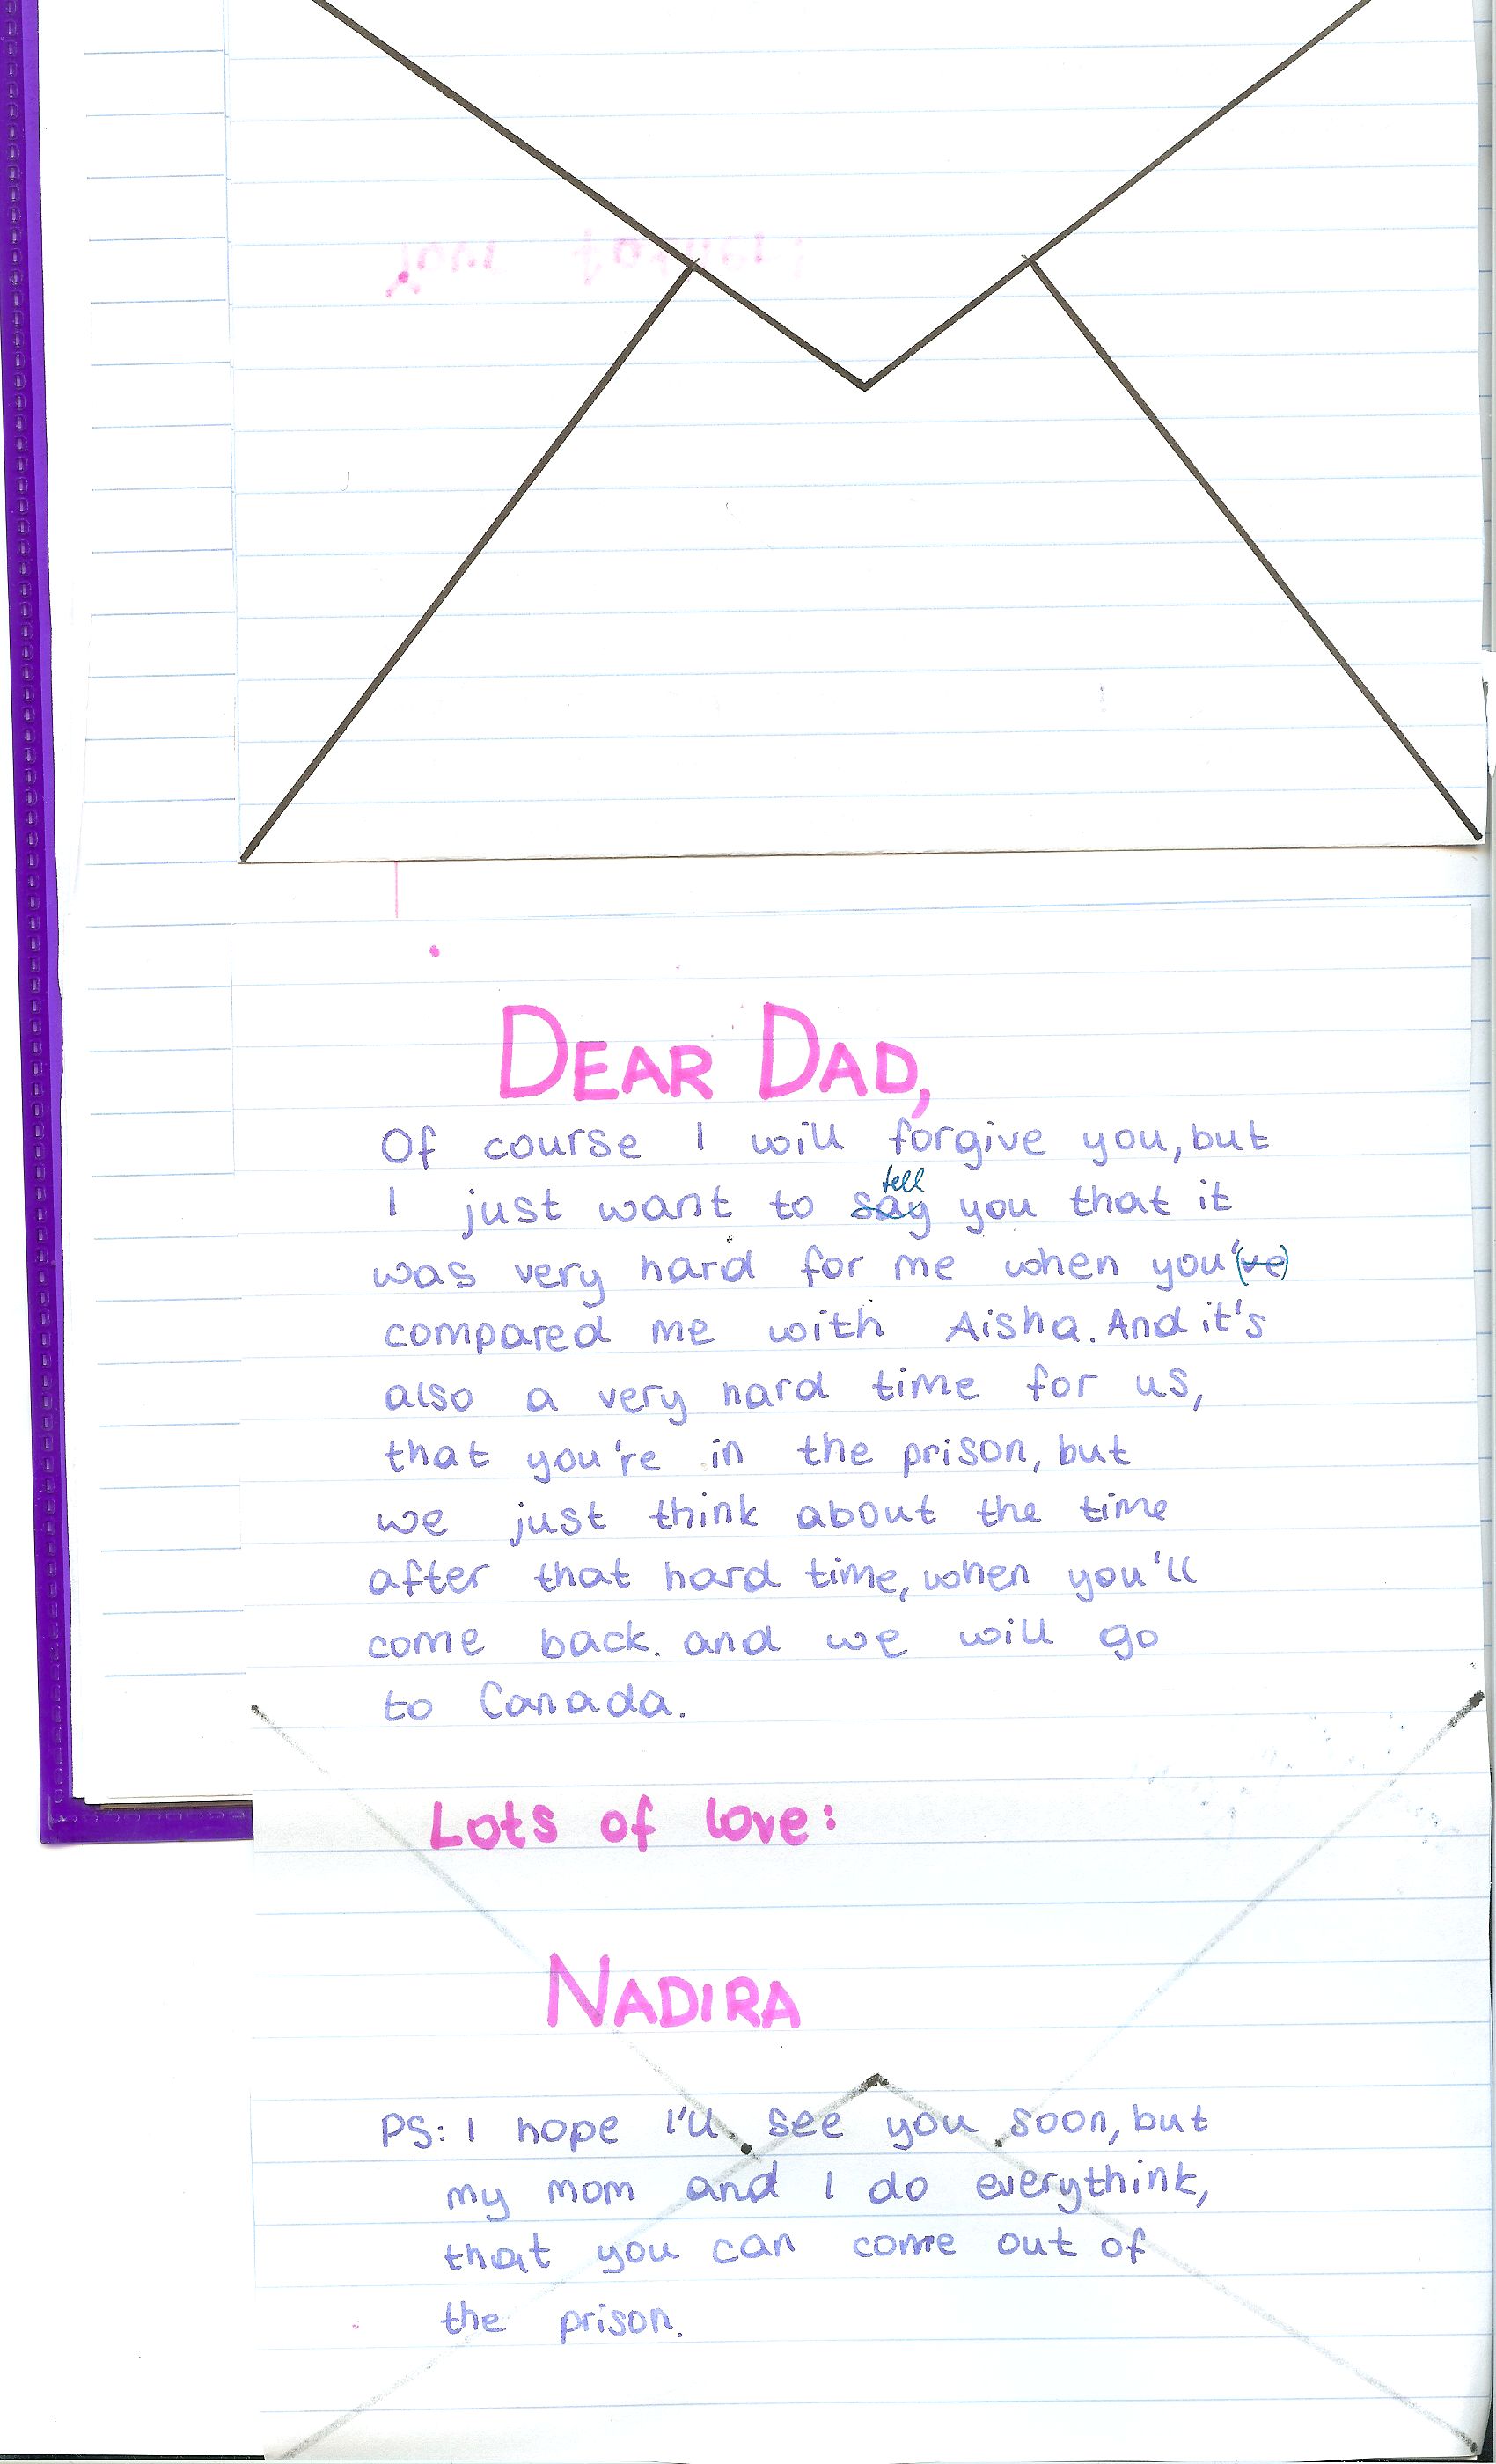 DEAR DAD,
Of course I will forgive you, but
tell
I just want to say you that it
was very hard for me when you've
compared me with Aisha. And it's
also a very hard time for us,
that you're in the prison, but
we just think about the time
after that hard time, when you'll
come back. and we will go
to Canada.
Lots of love:
NADIRA
PS: I hope I'll see you soon, but
my mom and I do everythink,
that you can come out of
the prison.